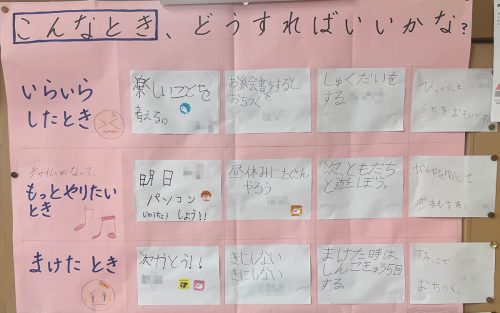 こんなとき、どうすればいいかな?
いらいら
したとき
楽しいことを
考える。
お絵書きをすると
おちつく
しゅくだいを
する。
びっくりした
ことを
チャイムがなって、
もっとやりたい
とき
明日
パソコン
しよう!!
昼休みにたくさん
やろう
次、ともだち
と遊ぼう。
まけた とき
次かとう!!
きにしない
きにしない
まけた時は、
しんこきゅう5回
する。
おちつく。